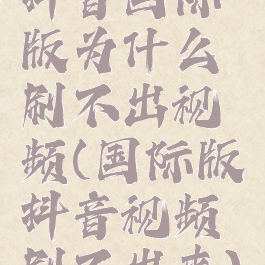 抖音国际
版为什么
刷不出视
频(国际版
抖音视频
刷不出来)